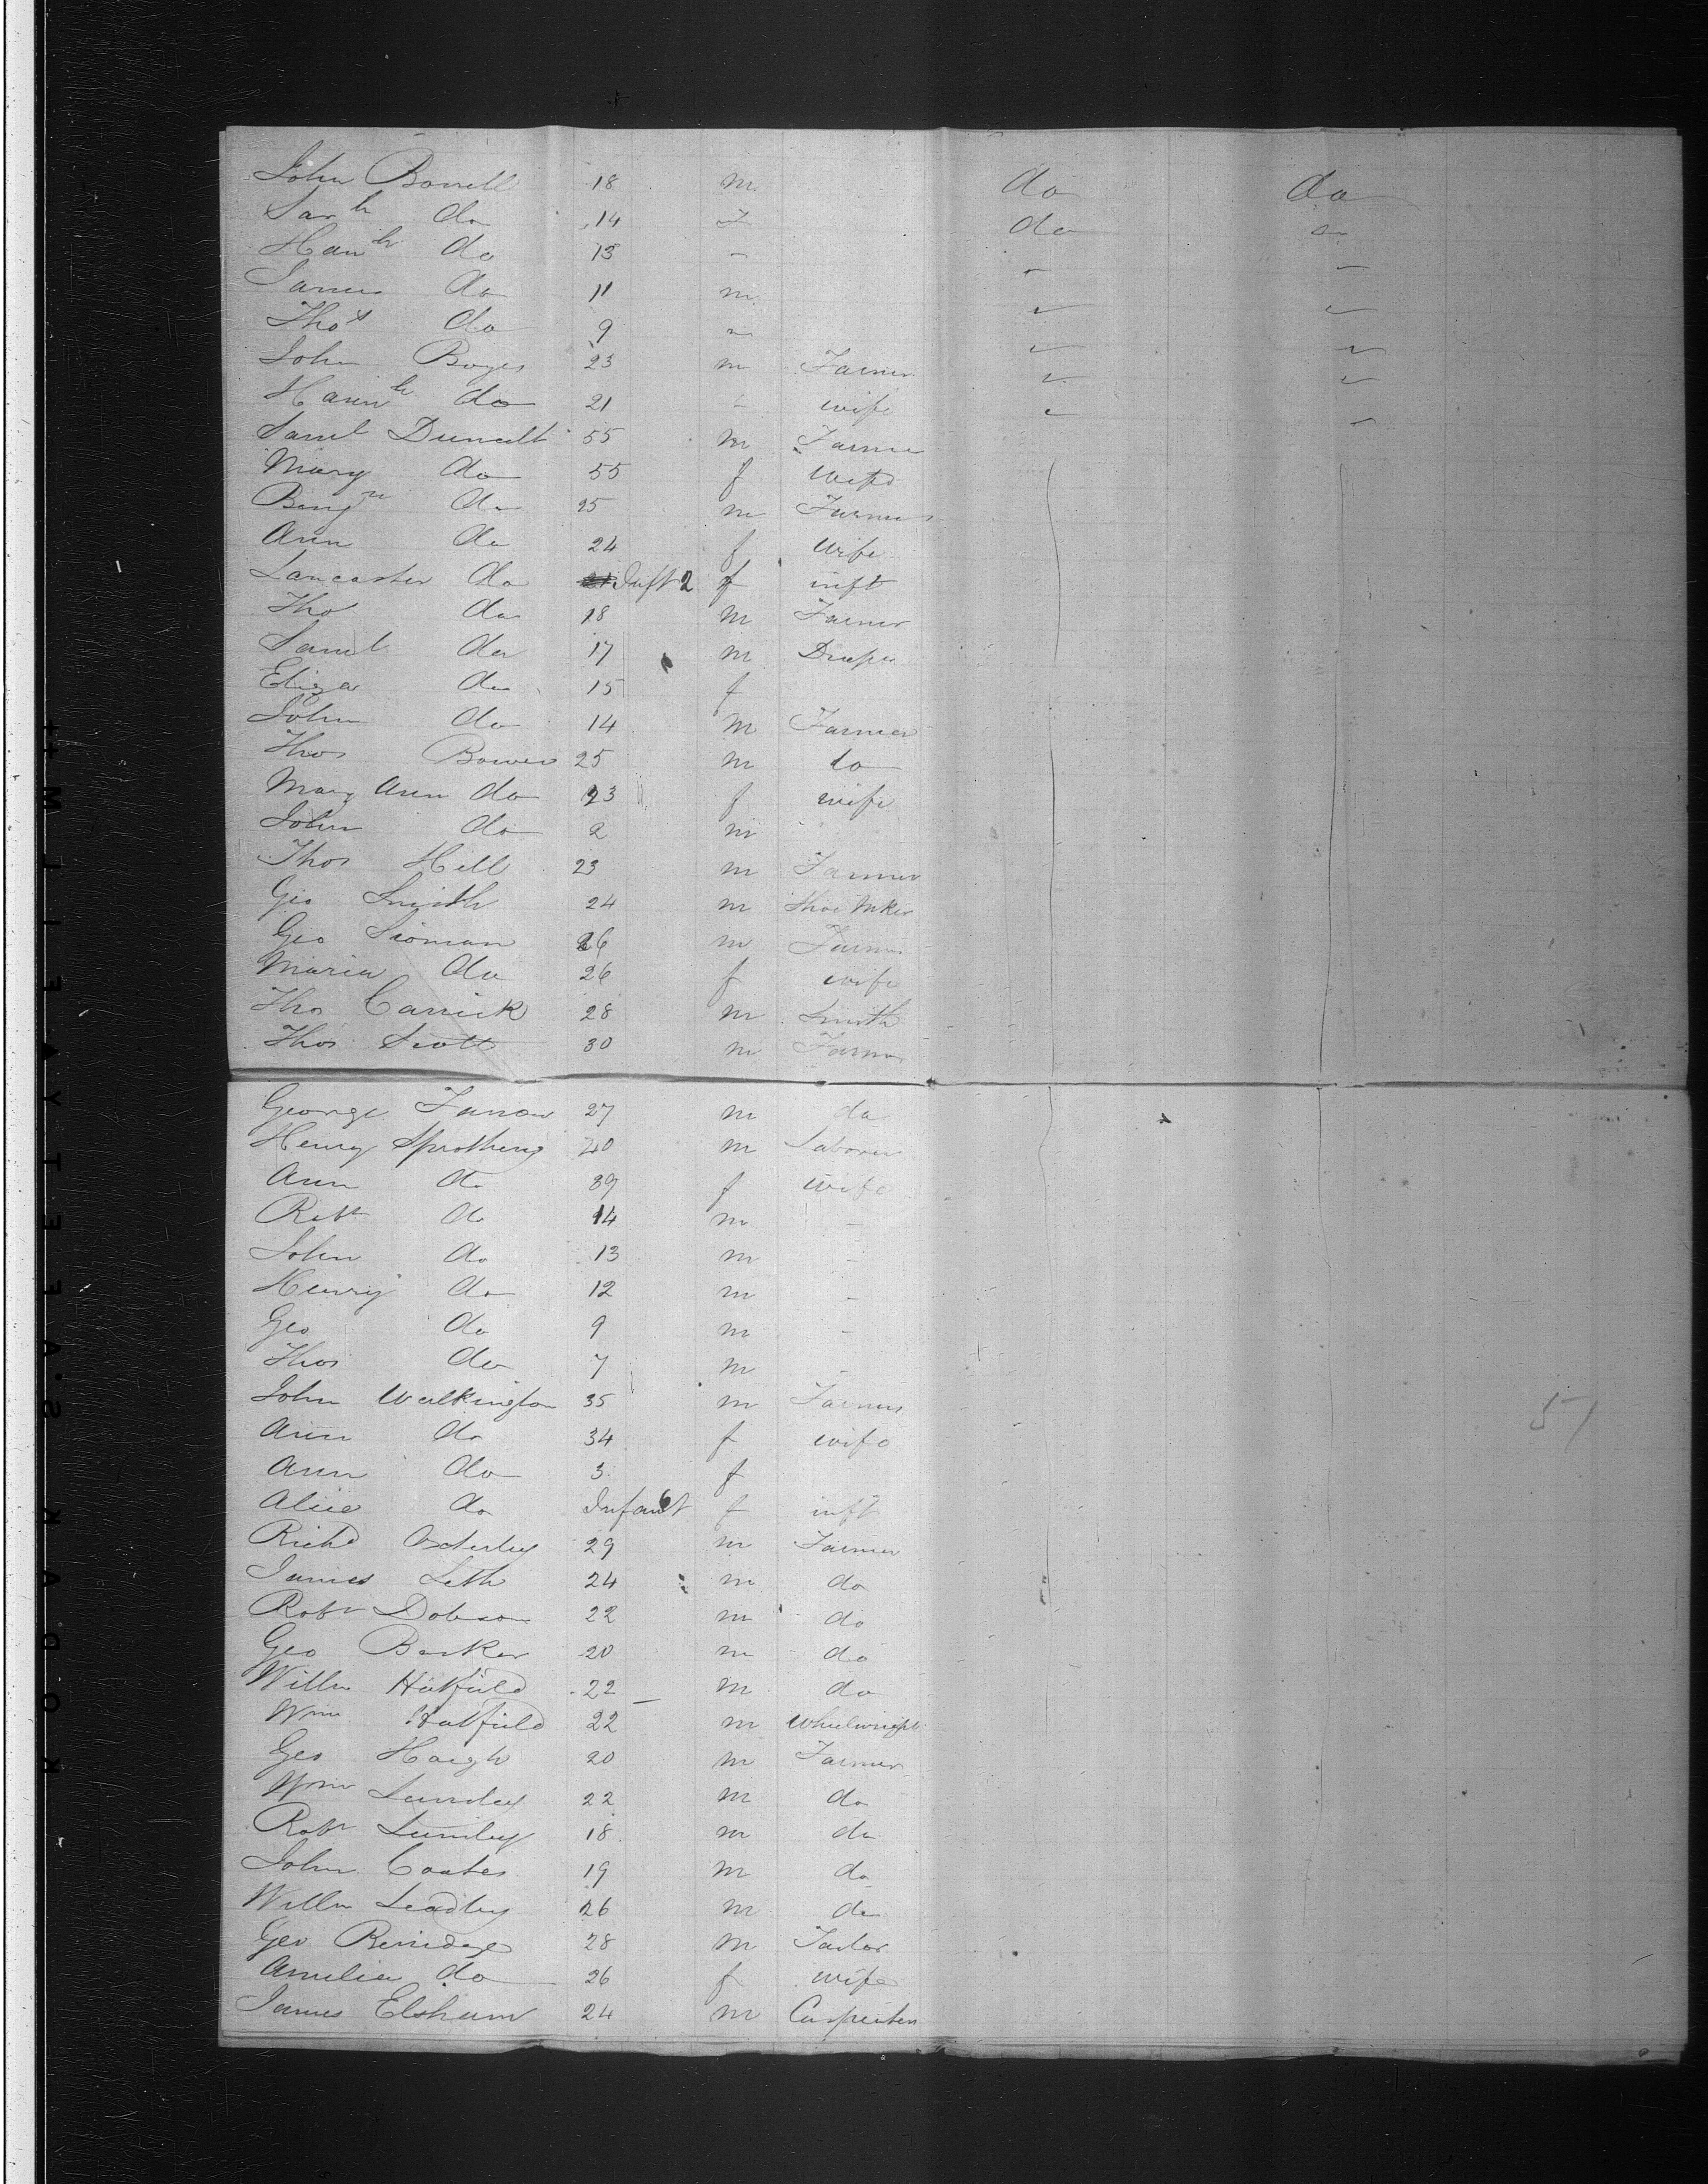 John Borrell 18 m do do
Sarh do 14 f do
Hanh do 13 -
James do 11 m
Thos do 9
John Boyes 23 m Farmer
Hannh do 21 - wife
Saml 55 m Farmer
Mary do 55 f wife
Benjn do 25 m Farmer
Ann do 24 f wife
Lancaster do Inft 2 f inft
Tho do 18 m Farmer
Saml do 17 m Draper
Eliza do 15 f
John do 14 m Farmer
Thos Bower 25 m do
Mary Ann do 23 f wife
John do 2 m
Thos Hill 23 m Farmer
Geo Smith 24 m Shoe Mker
Geo 26 m Farmer
Maria do 26 f wife
Thos Carrick 28 m Smith
Thos Scott 30 m Farmer
George Farrow 27 m do
Henry 40 m Laborer
Ann do 39 f wife
Robt do 14 m -
John do 13 m -
Henry do 12 m -
Geo do 9 m -
Thos do 7 m -
John Walkington 35 m Farmer
57
Ann do 34 f wife
Ann do 3 f
Alice do Infant 6 f inft
Richd 29 m Farmer
James 24 m do
Robt Dobson 22 m do
Geo Barker 20 m do
Willm Hatfield 22 m do
Wm Hatfield 22 m Wheelwright
Geo Haigh 20 m Farmer
Wm Lumley 22 m do
Robt Lumley 18 m do
John Coates 19 m do
Willm Leadley 26 m do
Geo 28 m Tailor
Amelia do 26 f wife
James Elsham 24 m Carpenter